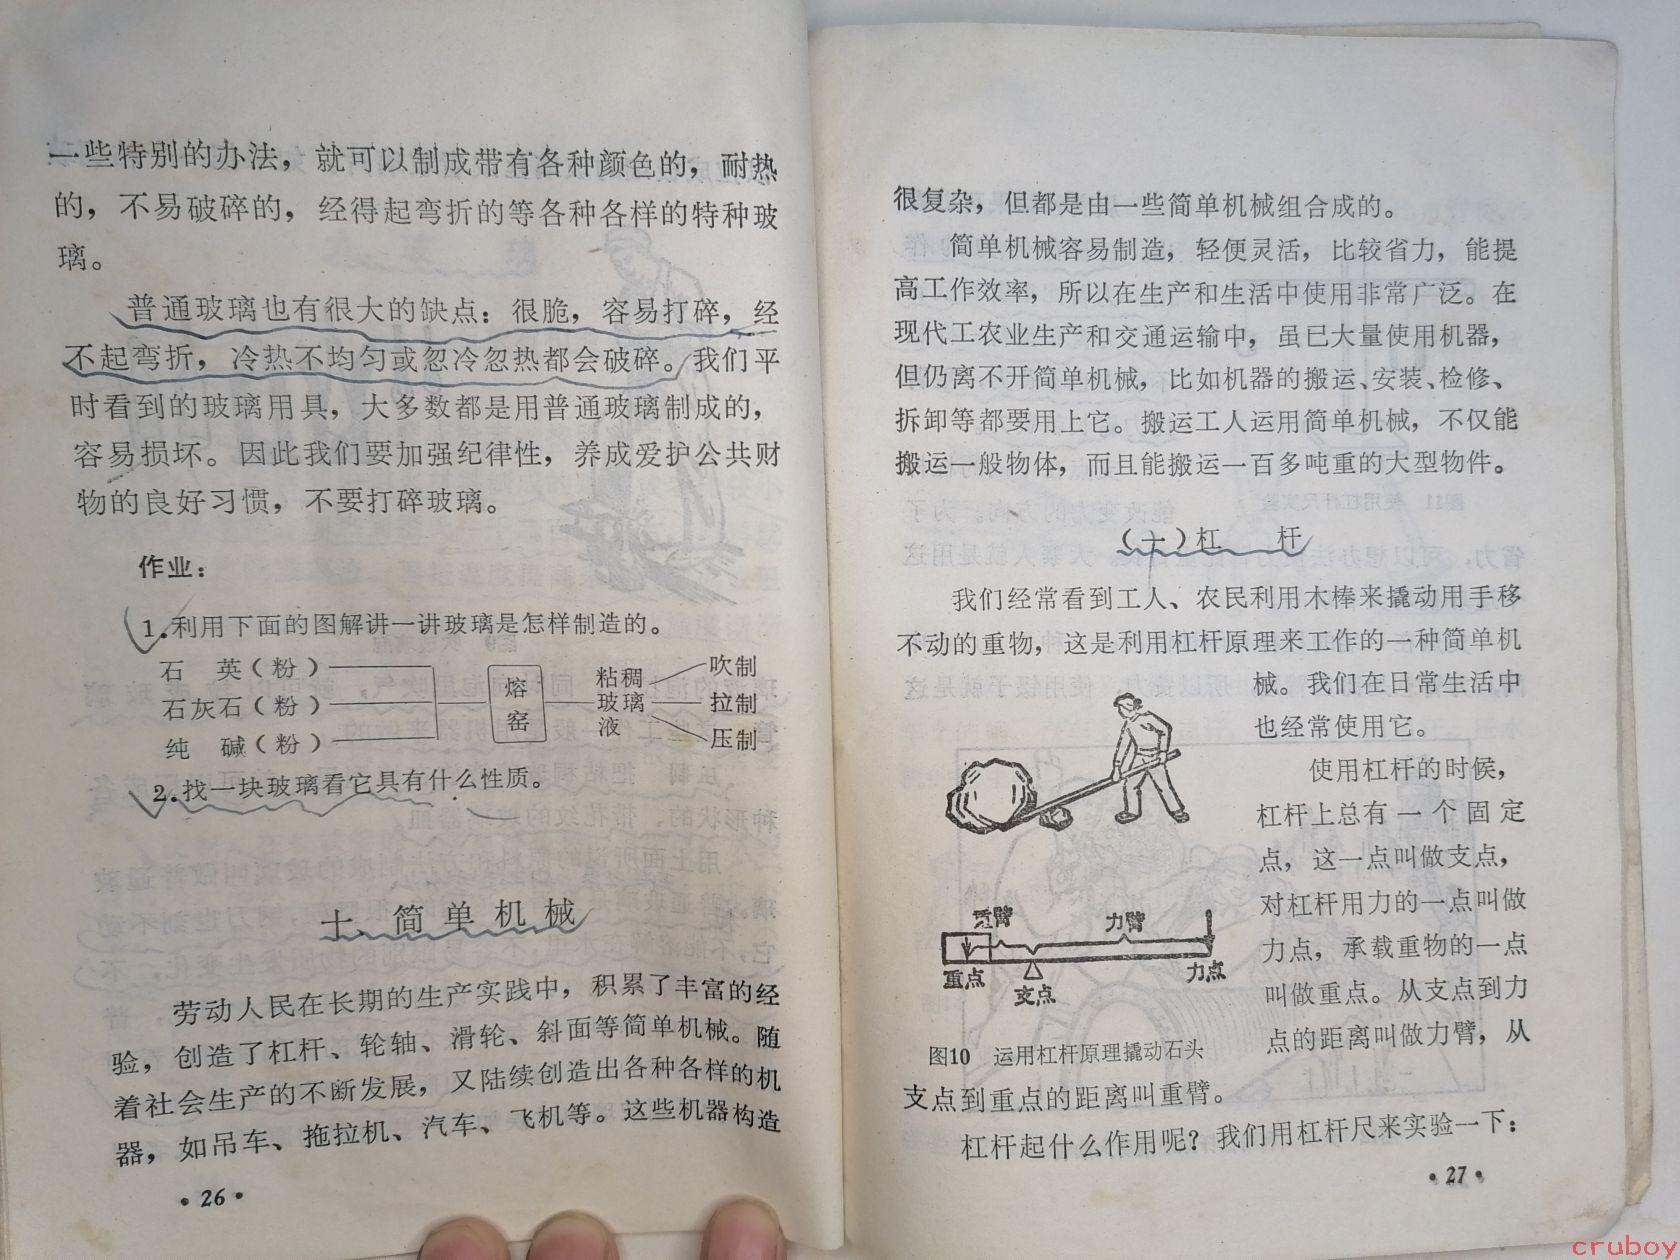 一些特别的办法，就可以制成带有各种颜色的，耐热
的，不易破碎的，经得起弯折的等各种各样的特种玻
璃。
普通玻璃也有很大的缺点：很脆，容易打碎，经
不起弯折，冷热不均匀或忽冷忽热都会破碎。我们平
时看到的玻璃用具，大多数都是用普通玻璃制成的，
容易损坏。因此我们要加强纪律性，养成爱护公共财
物的良好习惯，不要打碎玻璃。
作业：
1.利用下面的图解讲一讲玻璃是怎样制造的。
石 英（粉）
石灰石（粉）
纯 碱（粉）
熔
窑
粘稠
玻璃
液
吹制
拉制
压制
2.找一块玻璃看它具有什么性质。
十、简单机械
劳动人民在长期的生产实践中，积累了丰富的经
验，创造了杠杆、轮轴、滑轮、斜面等简单机械。随
着社会生产的不断发展，又陆续创造出各种各样的机
器，如吊车、拖拉机、汽车、飞机等。这些机器构造
·26·
很复杂，但都是由一些简单机械组合成的。
简单机械容易制造，轻便灵活，比较省力，能提
高工作效率，所以在生产和生活中使用非常广泛。在
现代工农业生产和交通运输中，虽已大量使用机器，
但仍离不开简单机械，比如机器的搬运、安装、检修、
拆卸等都要用上它。搬运工人运用简单机械，不仅能
搬运一般物体，而且能搬运一百多吨重的大型物件。
（一）杠 杆
我们经常看到工人、农民利用木棒来撬动用手移
不动的重物，这是利用杠杆原理来工作的一种简单机
械。我们在日常生活中
也经常使用它。
使用杠杆的时候，
杠杆上总有一个固定
点，这一点叫做支点，
对杠杆用力的一点叫做
力点，承载重物的一点
叫做重点。从支点到力
点的距离叫做力臂，从
重臂
力臂
重点
支点
力点
图10 运用杠杆原理撬动石头
支点到重点的距离叫重臂。
杠杆起什么作用呢？我们用杠杆尺来实验一下：
·27·
cruboy